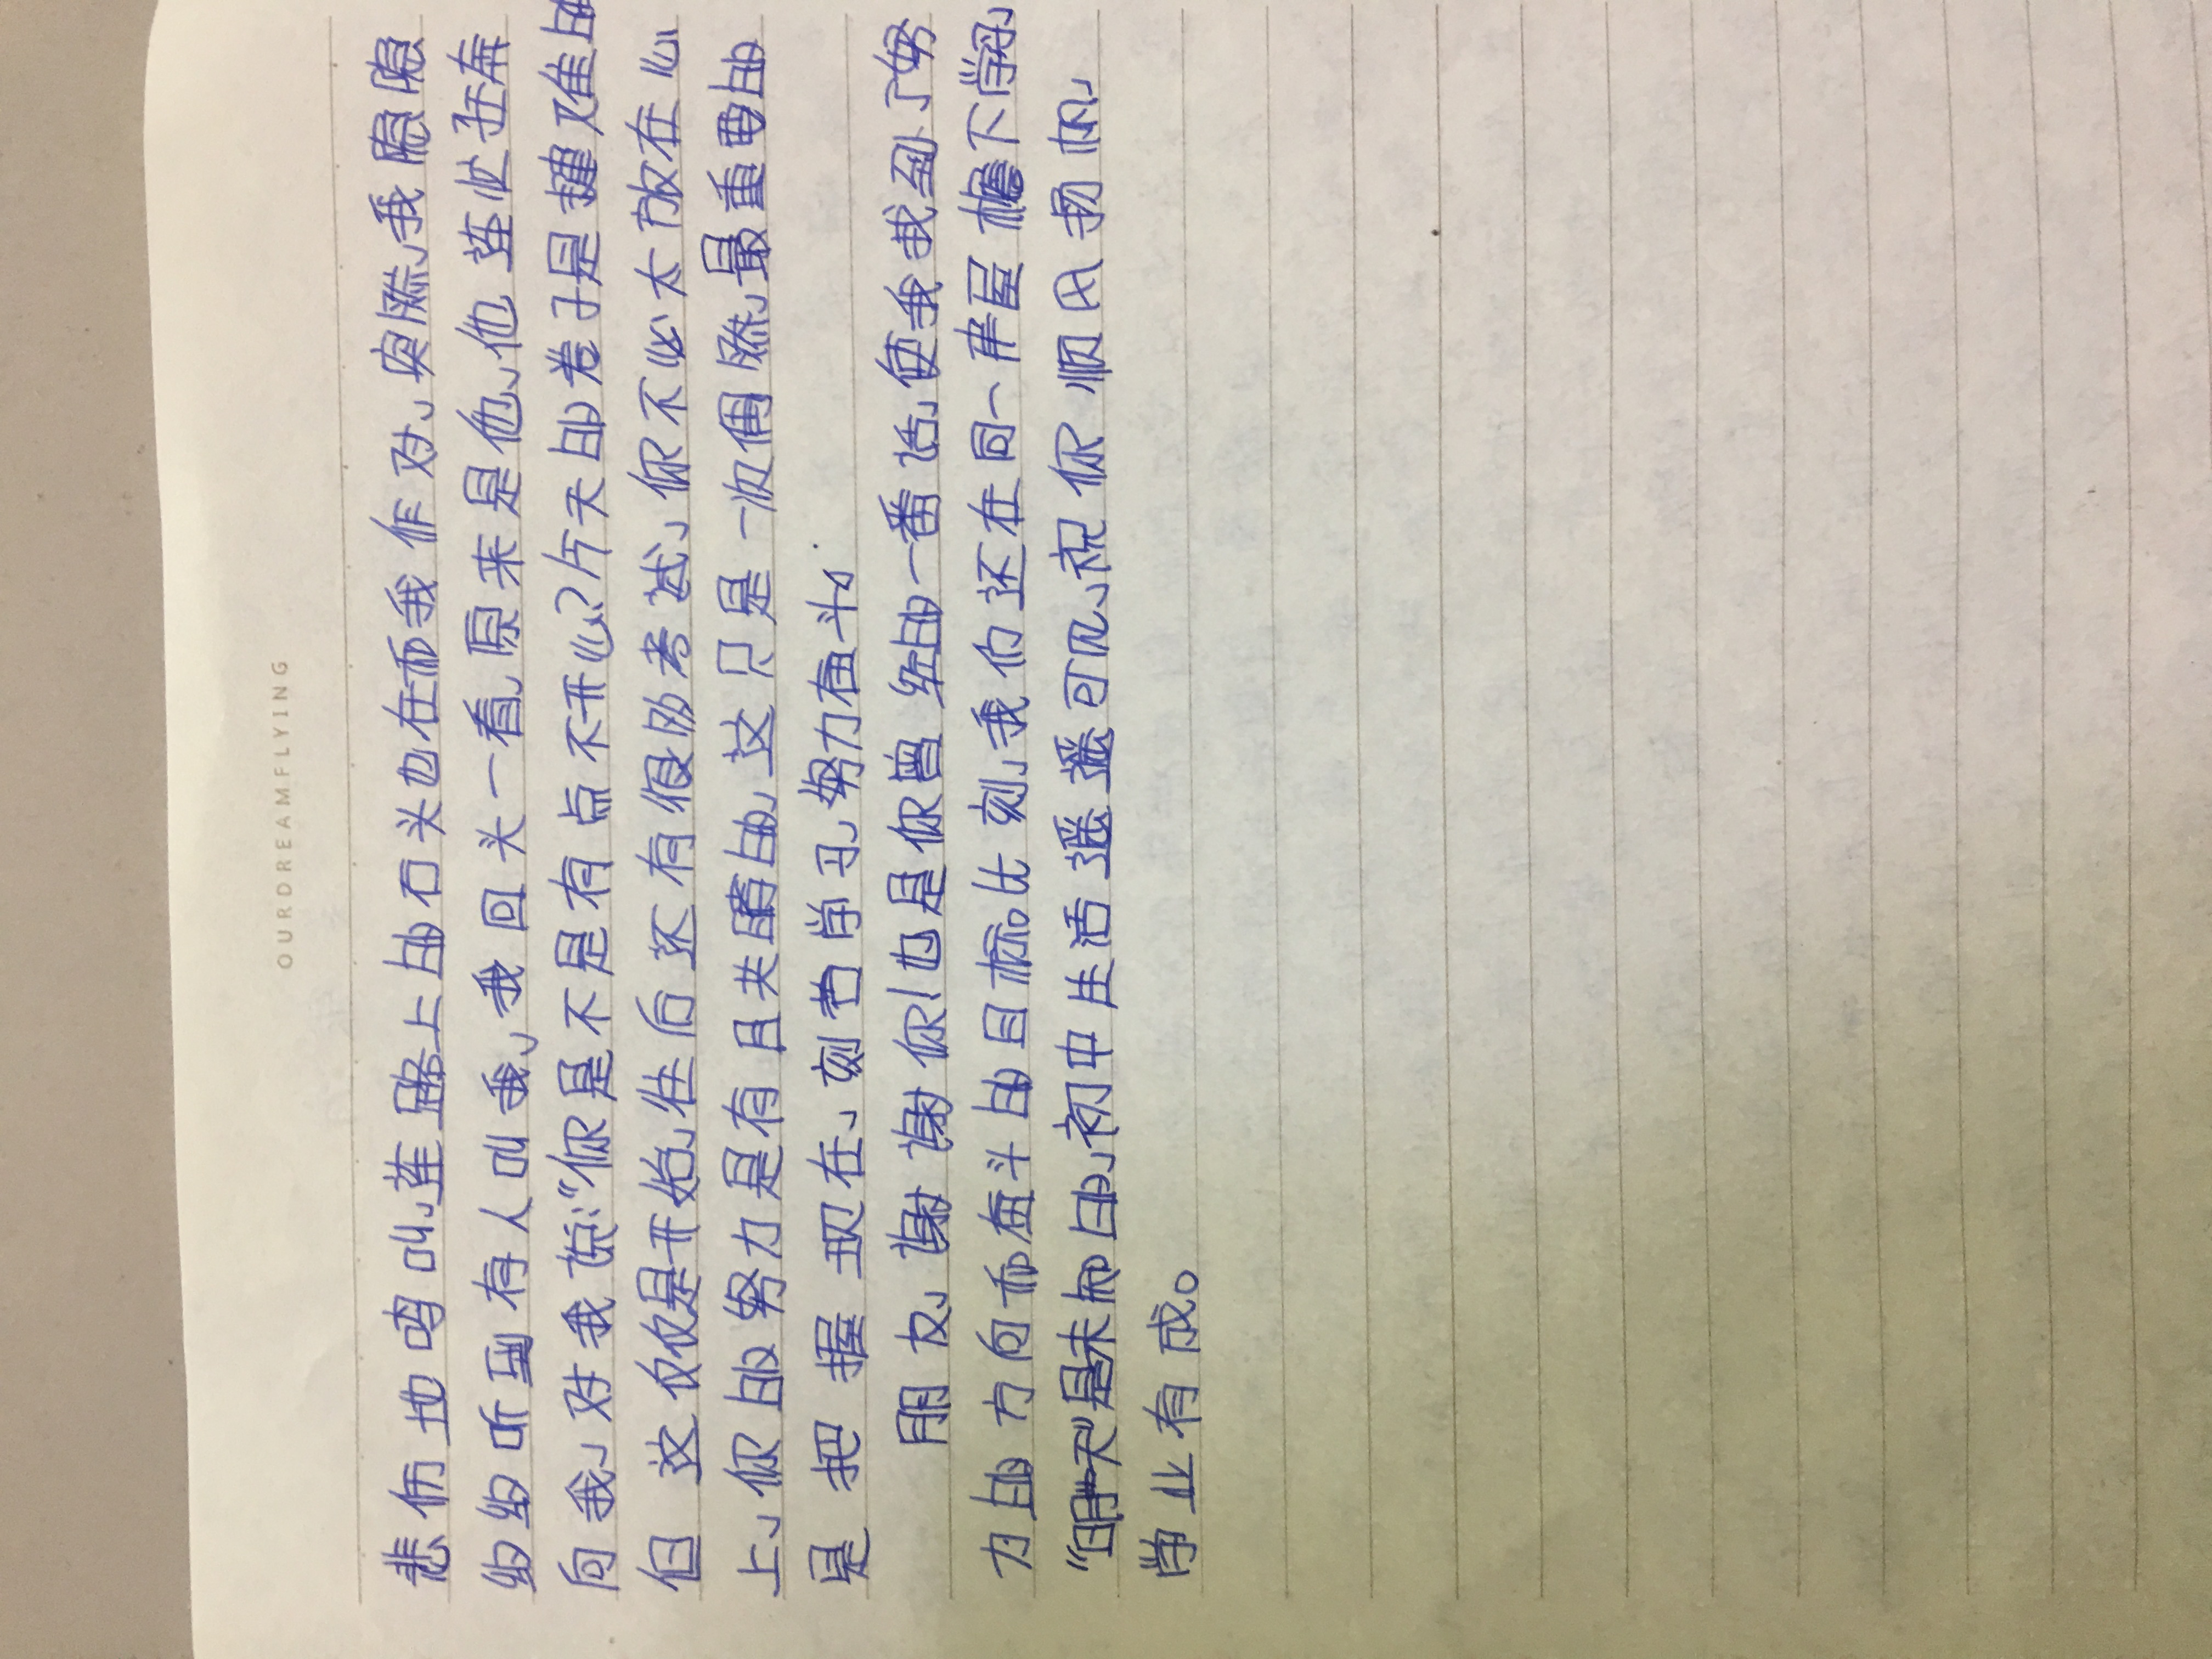 OURDREAMFLYING
悲伤地鸣叫,连路上的石头也在而我作对,突然,我隐隐
约约听到有人叫我,我回头一看,原来是他,他连忙奔
向我,对我说:“你是不是有点不开心?今天的卷子是挺难的
但这仅仅是开始,往后还有很多考试,你不必太放在心
上,你的努力是有目共睹的,这只是一次偶然,最重要的
是把握现在,刻苦学习,努力奋斗。
朋友,谢谢你!也是你曾经的一番话,使我找到了努
力的方向和奋斗的目标。此刻,我们还在同一屋檐下学习,
“明天”是未知的,初中生活遥遥可见,祝你顺风扬帆,
学业有成。